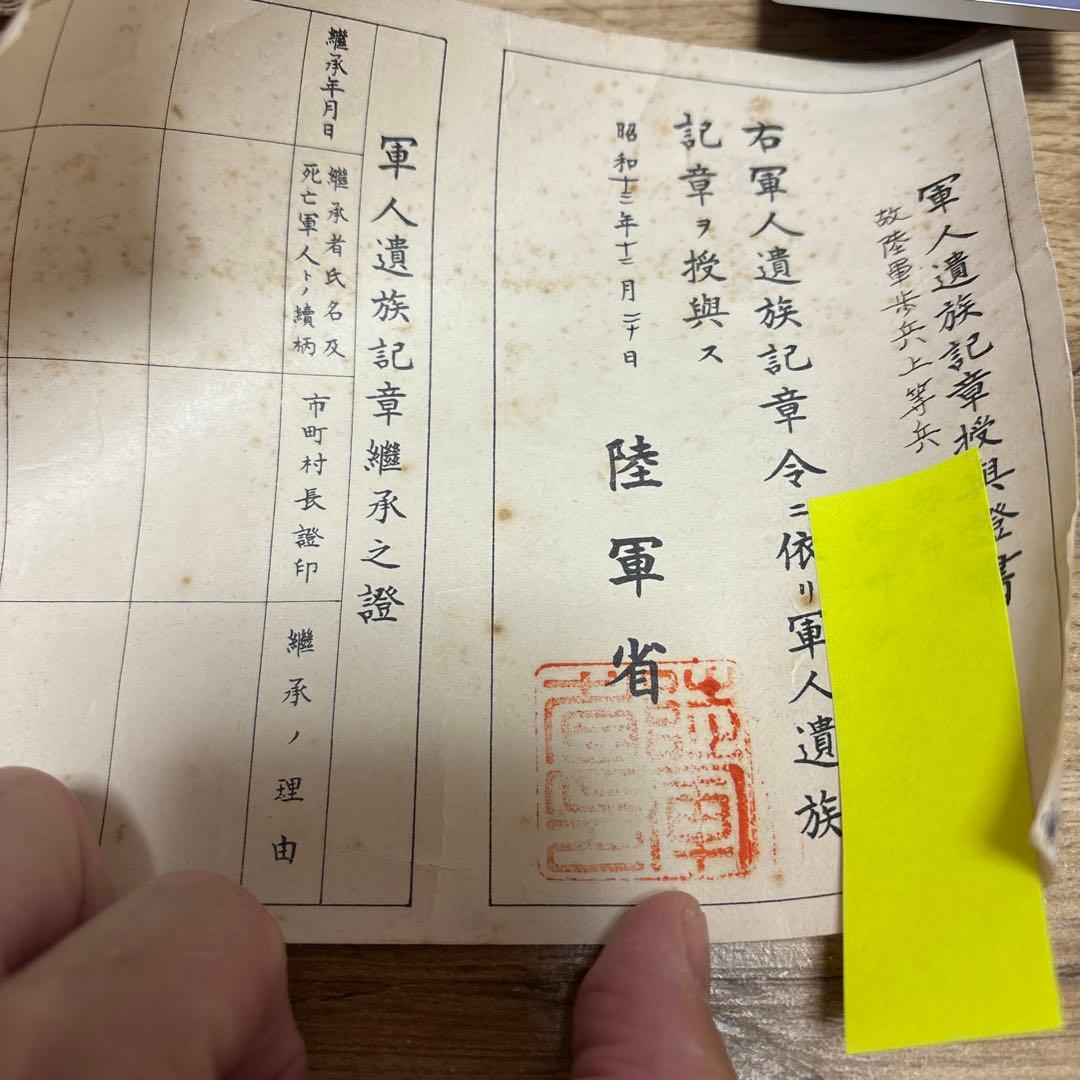 軍人遺族記章授與證書
故陸軍歩兵上等兵
右軍人遺族記章令ニ依リ軍人遺族
記章ヲ授與ス
昭和十三年十二月二十日
陸軍省
軍人遺族記章繼承之證
繼承年月日
繼承者氏名及
死亡軍人トノ續柄
市町村長證印
繼承ノ理由